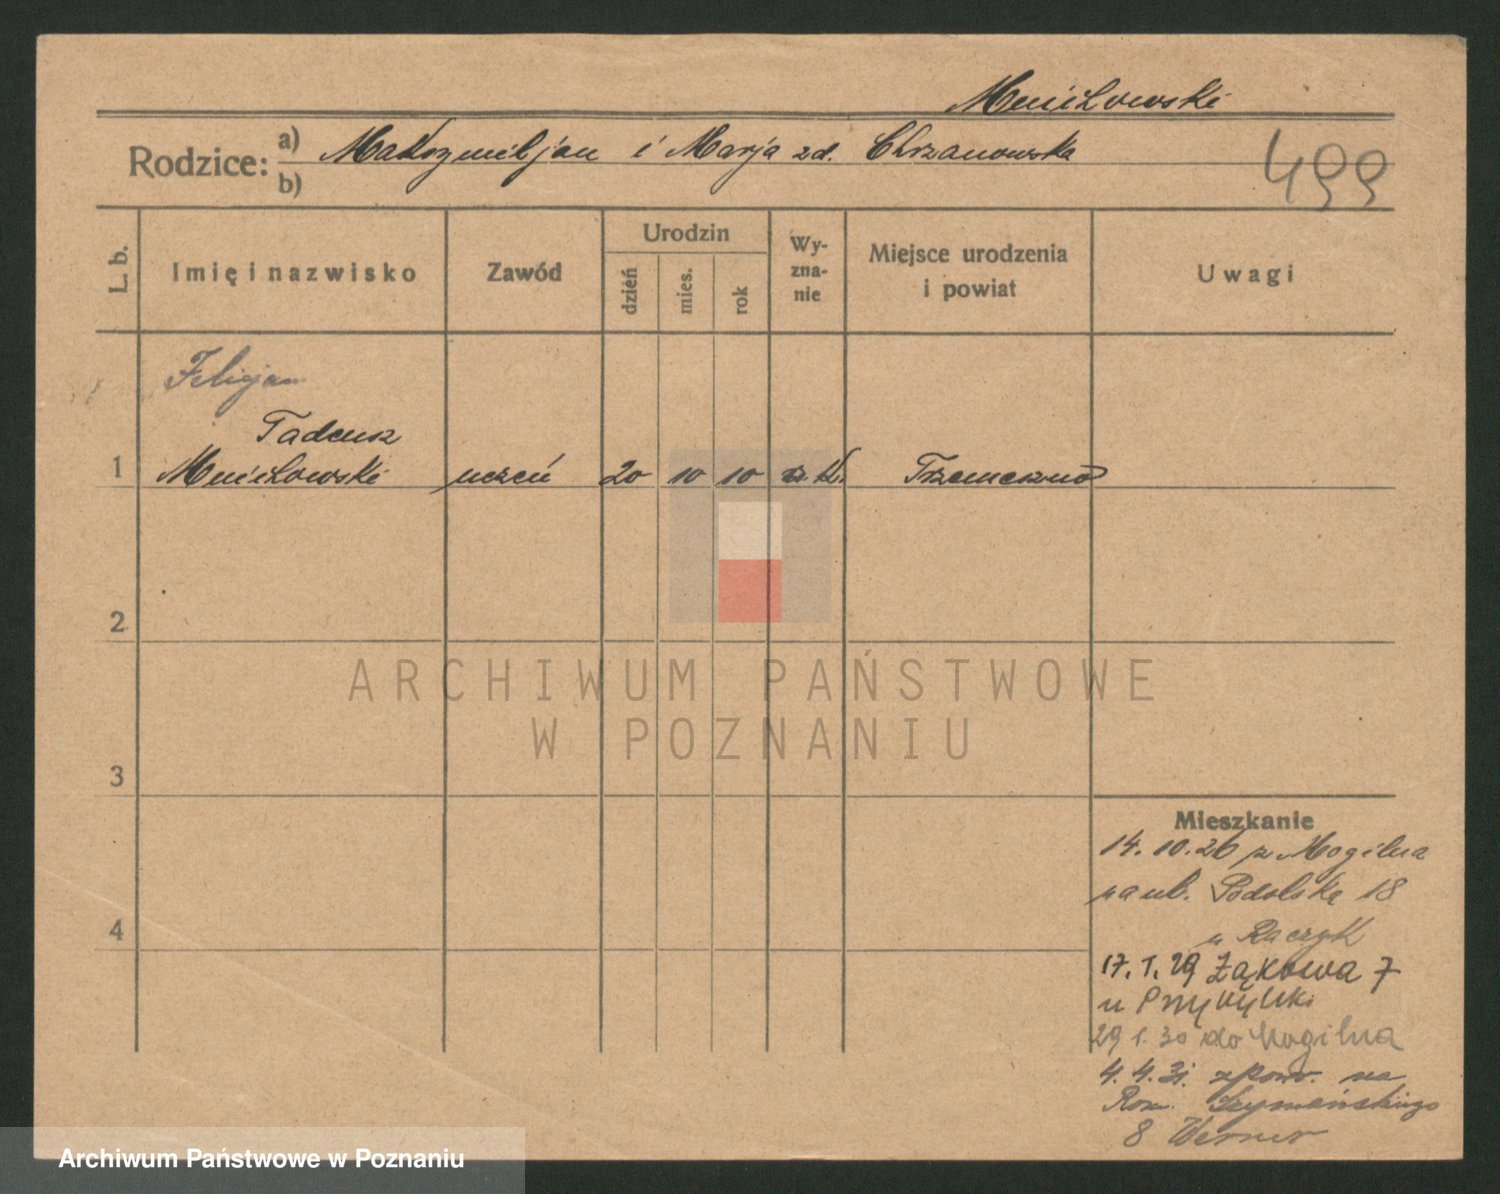 Mnichowski
Rodzice:
a) Maksymiljan i Marja zd. Chrzanowska
b)
499
L. b.
Imię i nazwisko
Zawód
Urodzin
dzień
mies.
rok
Wy-
zna-
nie
Miejsce urodzenia
i powiat
Uwagi
Felicjan
Tadeusz
1 Mnichowski uczeń 20 10 10 rz. k. Trzemeszno
2
3
4
ARCHIWUM PAŃSTWOWE
W POZNANIU
Mieszkanie
14.10.26 z Mogilna
na ul. Podolską 18
u Raczyk
17.1.29 Łąkowa 7
u
29 1.30 do Mogilna
4.4.31. zpow. na
Rom. Szymańskiego
8 Werner
Archiwum Państwowe w Poznaniu